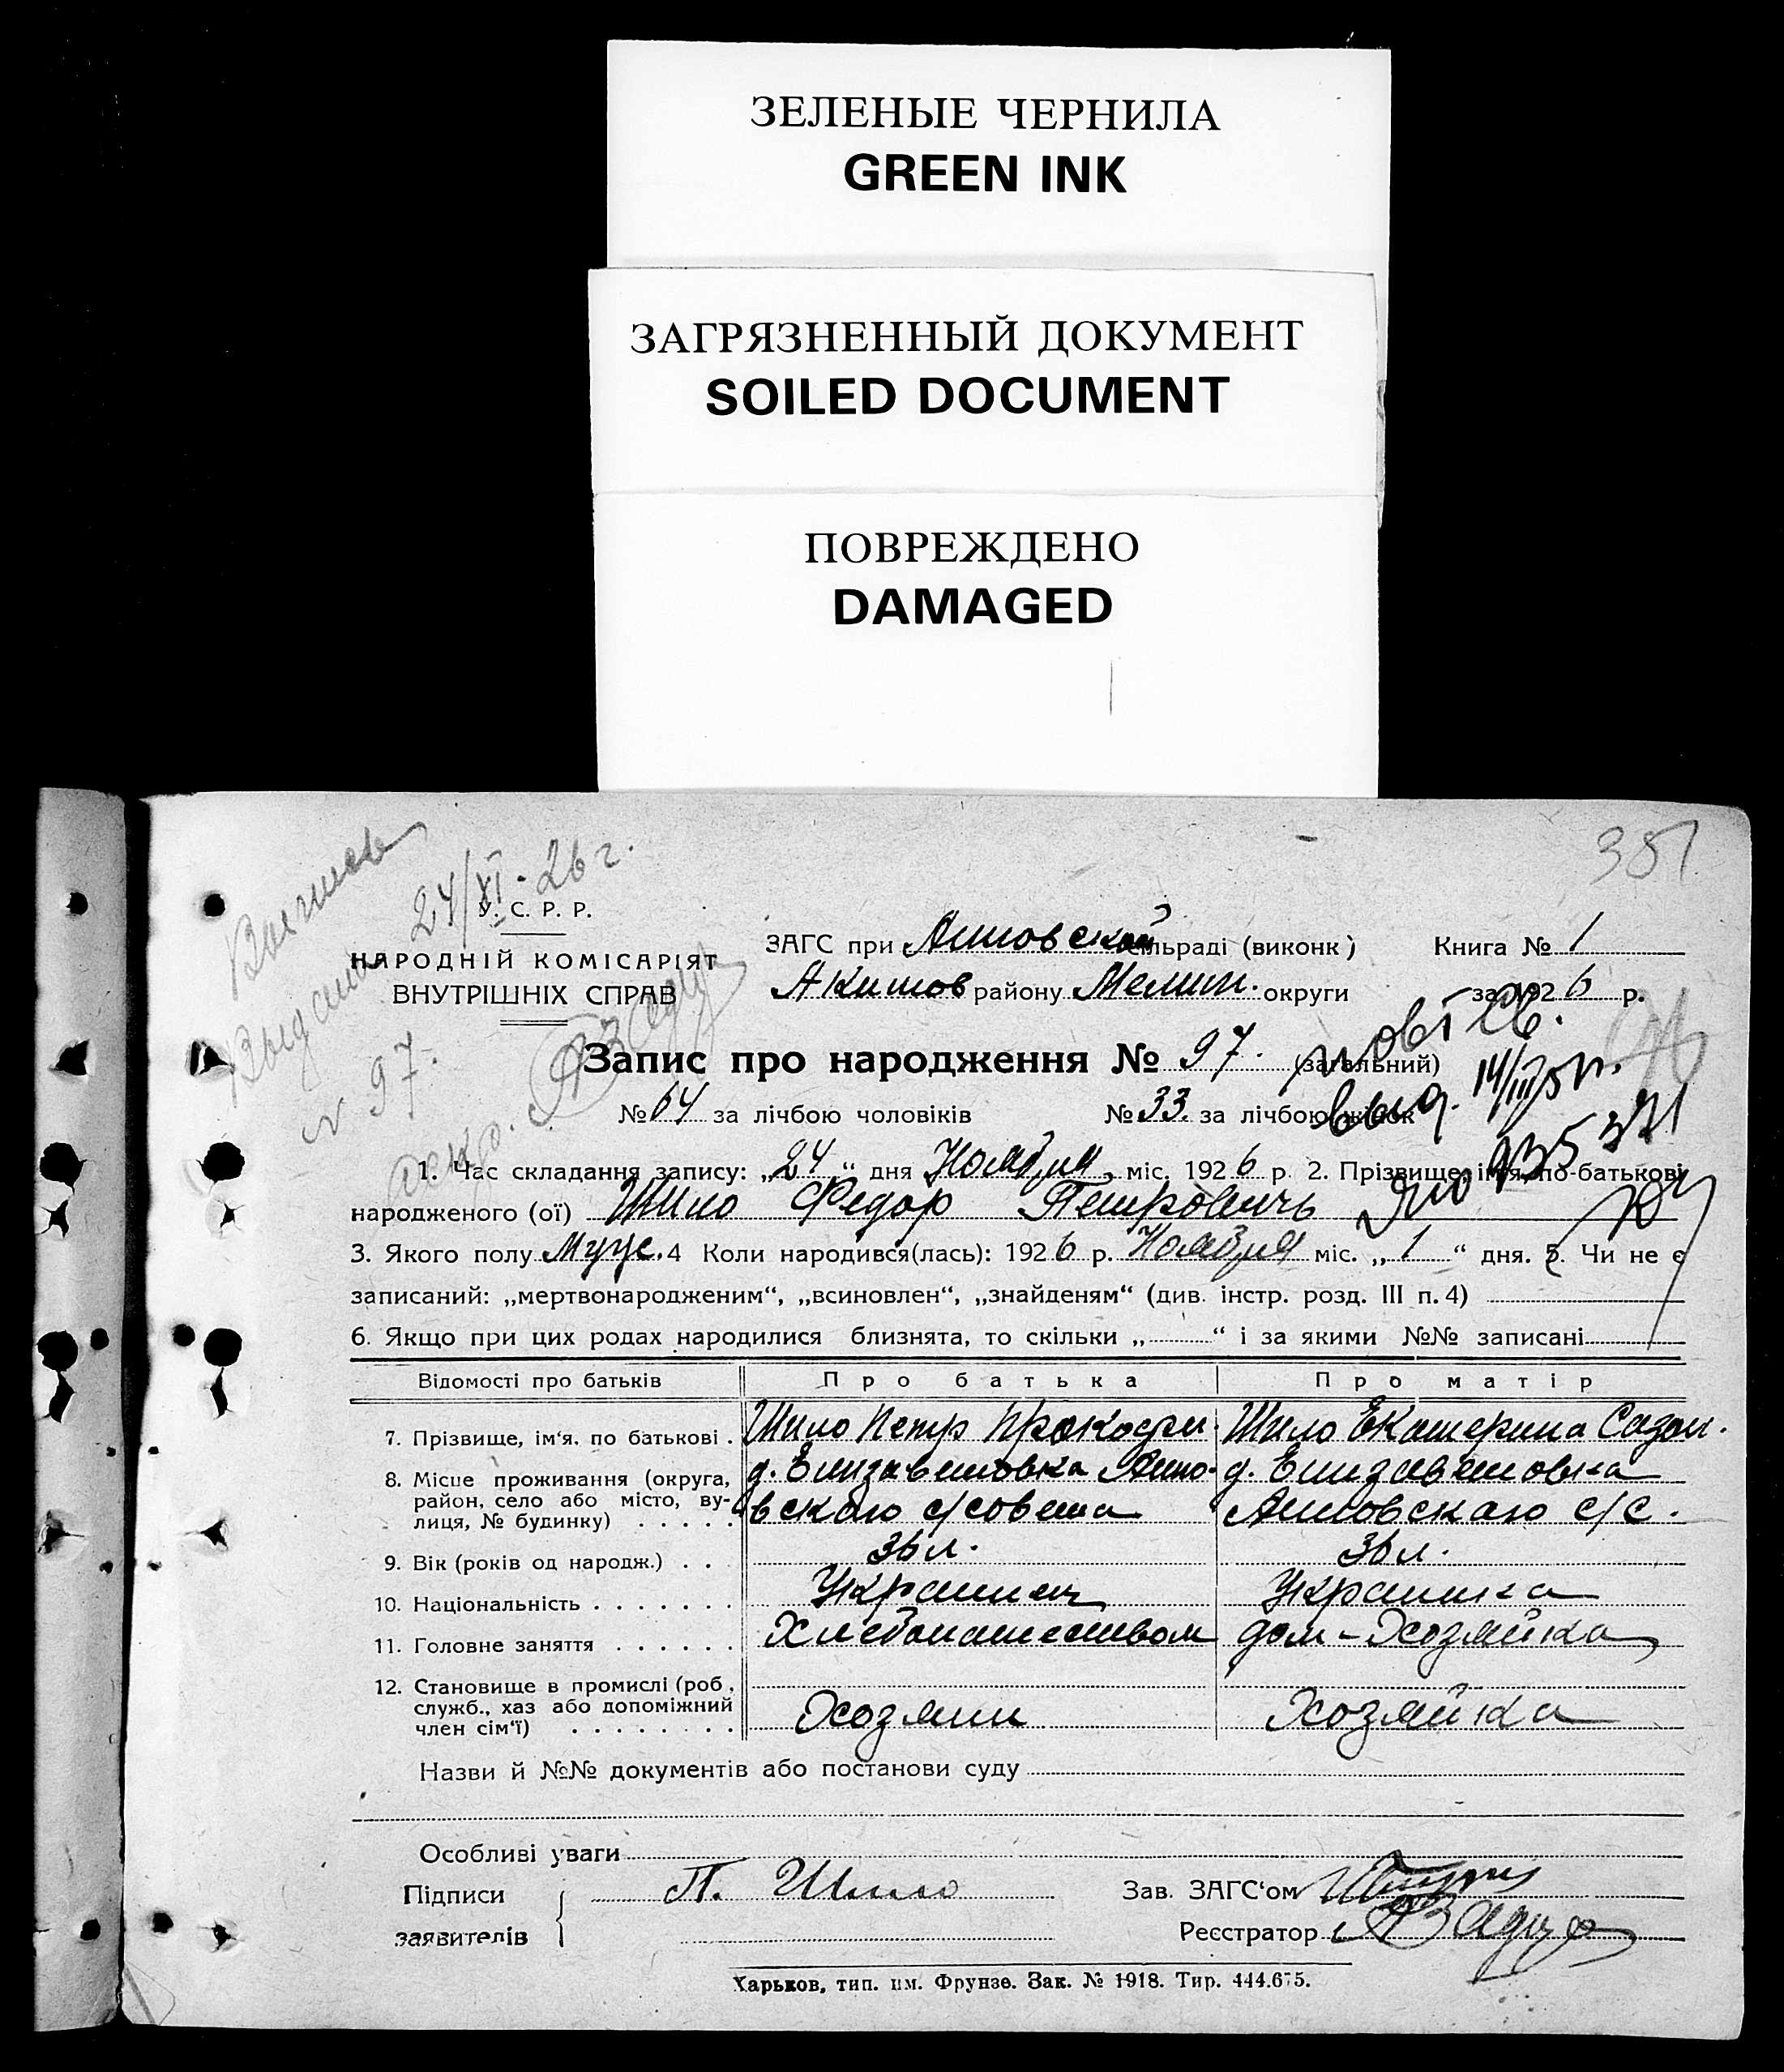 ЗЕЛЕНЫЕ ЧЕРНИЛА
GREEN INK
ЗАГРЯЗНЕННЫЙ ДОКУМЕНТ
SOILED DOCUMENT
ПОВРЕЖДЕНО
DAMAGED
351
24/XI-26 г.
У. С. Р. Р.
НАРОДНІЙ КОМІСАРІЯТ
ВНУТРІШНІХ СПРАВ
Выдана
№ 97.
ЗАГС при сільраді (виконк) Книга № 1
Акимов району Мелит. округи за 1926 р.
Запис про народження № 97. (загальний)
№ 64 за лічбою чоловіків № 33. за лічбою жінок
выд. 14/III
935371
1. Час складання запису: „24“ дня Ноября міс. 1926 р. 2. Прізвище, ім'я, по-батькові
народженого (ої) Шило Федор Петровичь
3. Якого полу Муус. 4 Коли народився(лась): 1926 р. Ноября міс. „1“ дня. 5. Чи не є
записаний: „мертвонародженим“, „всиновлен“, „знайденям“ (див. інстр. розд. III п. 4)
6. Якщо при цих родах народилися близнята, то скільки „ “ і за якими №№ записані
Відомості про батьків Про батька Про матір
7. Прізвище, ім'я, по батькові . Шило Петр Прокофи. Шило Екатерина Сазон.
8. Місце проживання (округа, район, село або місто, вулиця, № будинку) . . . . . д. Елизаветовка д. Елизаветовка
вского с/совета с/с.
9. Вік (років од народж.) . . 36 л. 36 л.
10. Національність . . . . . . . Украинец Украинка
11. Головне заняття . . . . . . Хлебопашеством дом-Хозяйка
12. Становище в промислі (роб., служб., хаз або допоміжний член сім'ї) . . . . . . . . Хозяин Хозяйка
Назви й №№ документів або постанови суду
Особливі уваги
Підписи заявителів П. Шило Зав. ЗАГС'ом
Реєстратор
Харьков, тип. им. Фрунзе. Зак. № 1918. Тир. 444.675.